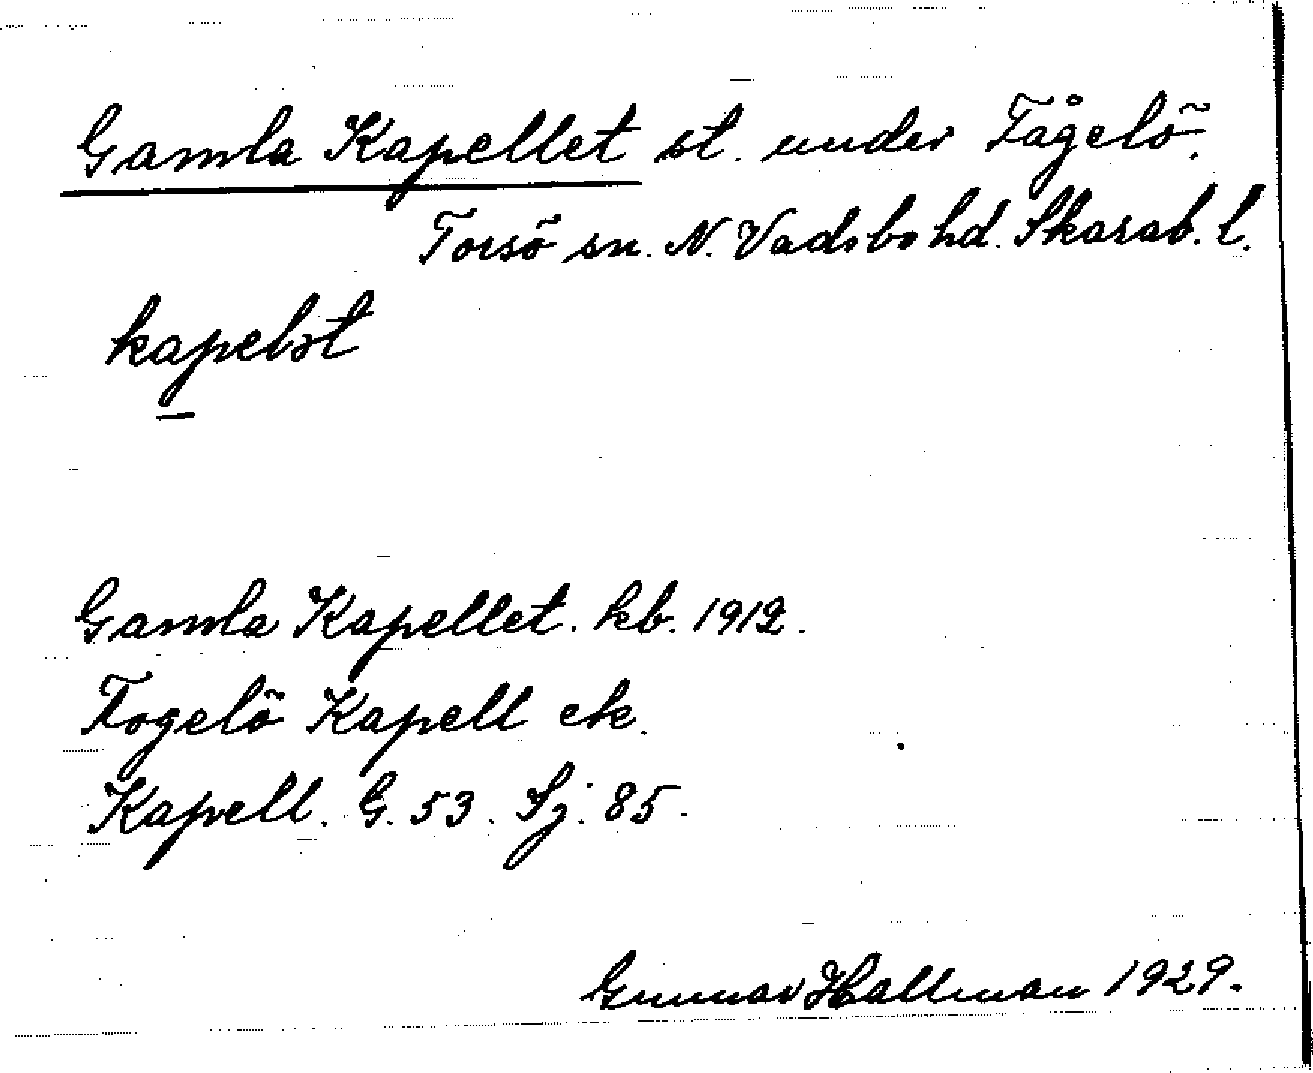 Gamla Kapellet st. under Fågelö.
Torsö sn. N. Vadsbo hd. Skarab. l.
kapelst
Gamla Kapellet. kb. 1912.
Fogelö Kapell ek.
Kapell. G. 53. Sj. 85.
Gunnar Hallman 1929.